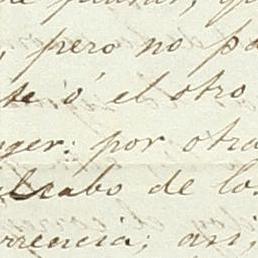 pero no pa
te ó el otro
ger: por otra
cabo de los
rrencia; asi,